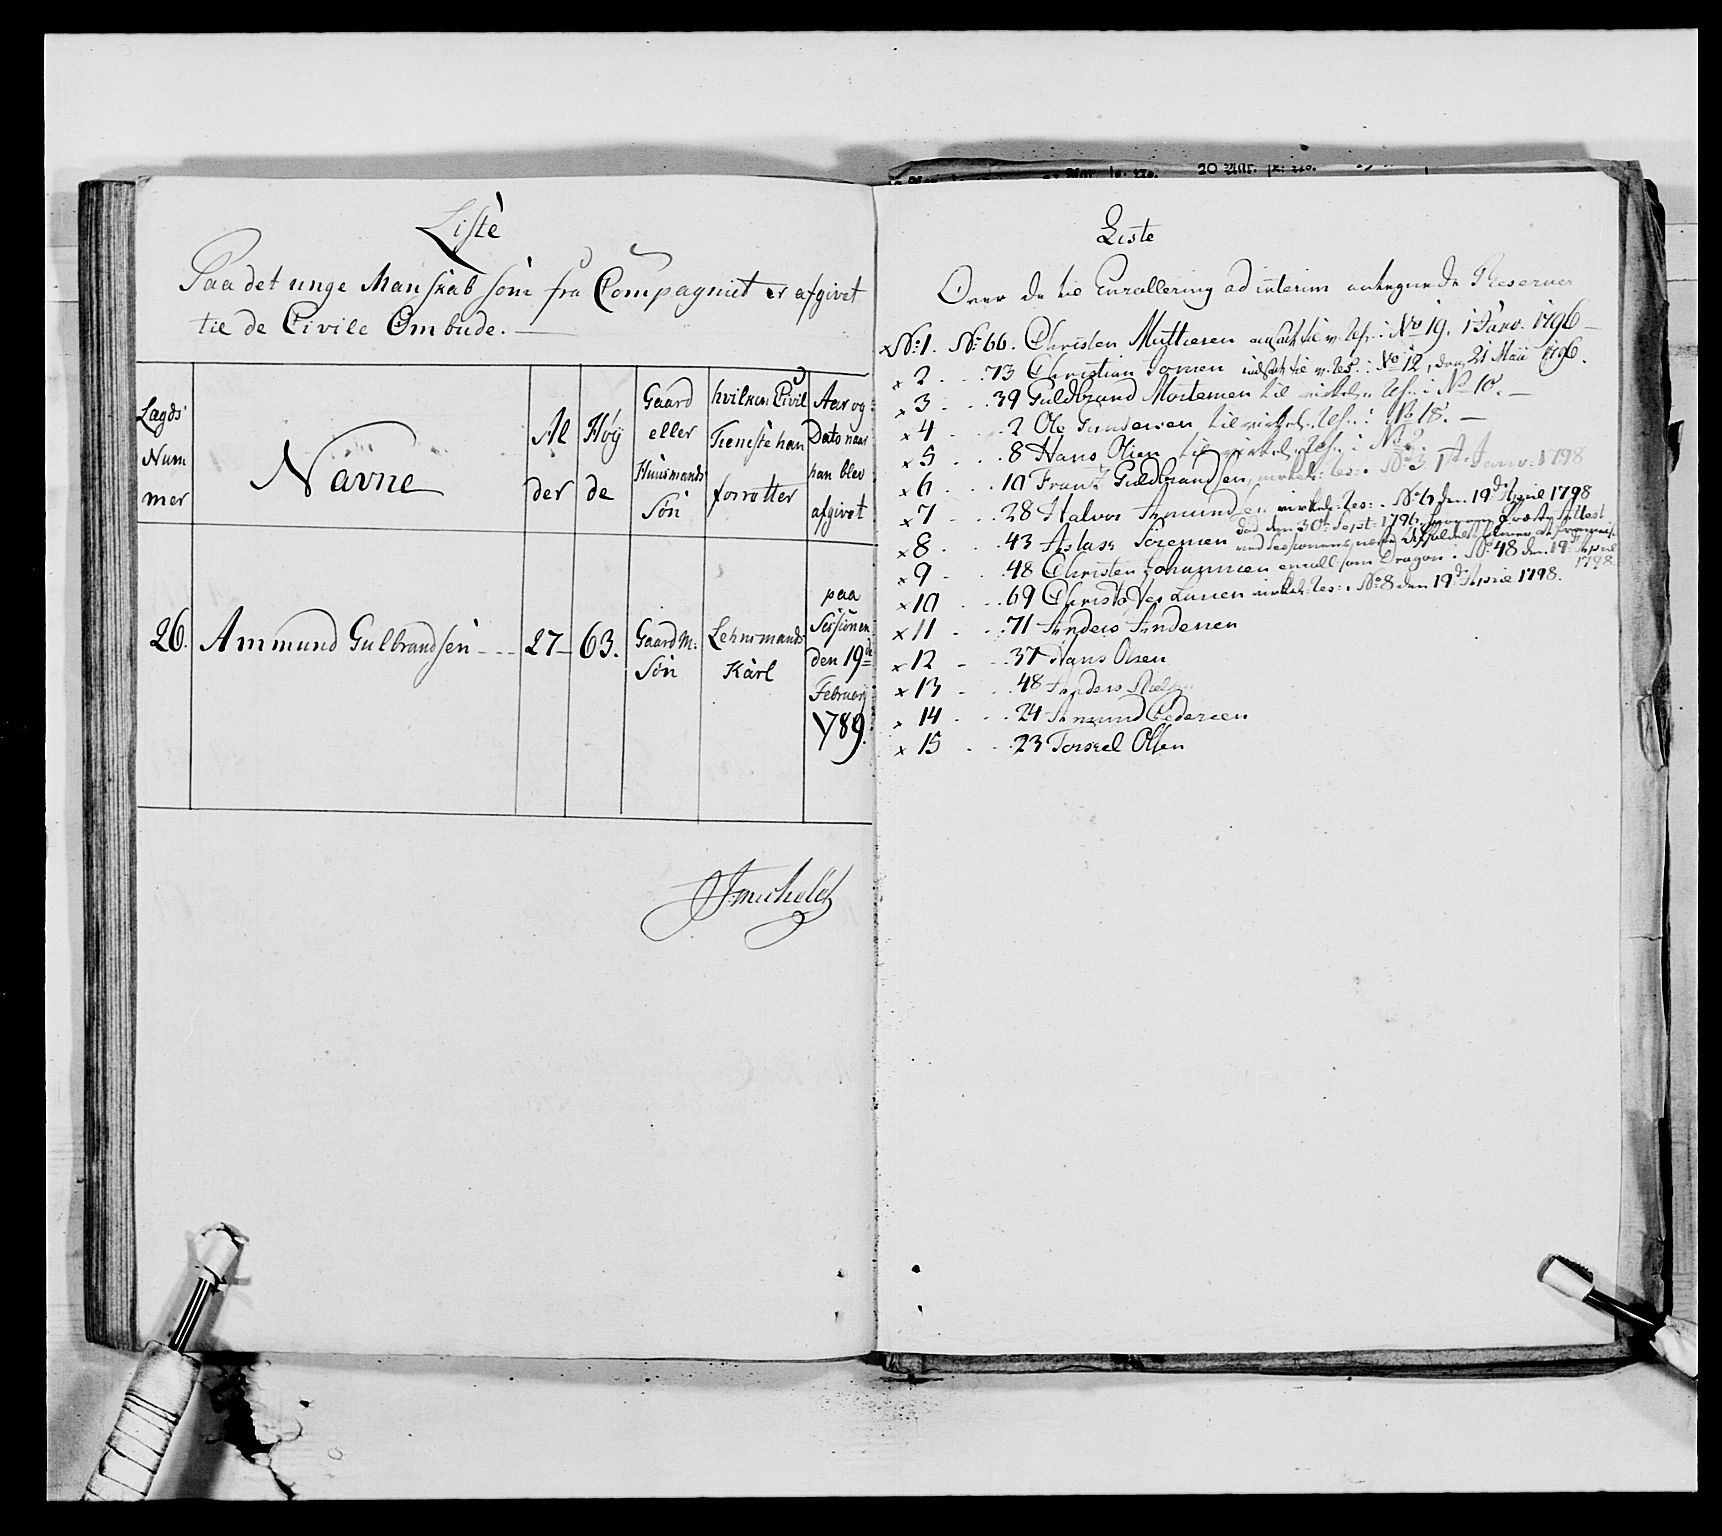 Liste
Paa det unge Manskab som fra Compagniet er afgivet
til de Civile Ombude.
Lægds Num mer
Navne
Al der
Høy de
Gaard eller Huusmands Søn
hvilken Civil Tieneste han forretter
Aar og Dato naar han blev afgivet
26. Ammund Gulbrandsen - - - 27- 63. Gaardm: Søn Lehnsmands Karl paa Sessionen den 19de Februarj 1789.
Liste
Over de til Enrollering ad interim antegnede Reserver
x No: 1. No: 66. Christen Mattiesen No 19. 1 Janv. 1796 -
x 2 - . .73 Christian No 12, den 21 Maii 1796.
x 3 . . .39 Guldbrand Mortensen til No 10. -
x 4 . . . 2 Ole Gundersen til No 18. -
x 5 . . . 8 Hans Olsen til No
x 6 . . . 10 Frantz Guldbrandsen, No 3 1st Janv: 1798
x 7 . . .28 Halvor Amundsen No 6 den 19d April 1798
x 8 . . .43 Aslak Sörensen död den 30te Sept: 1796
x 9 . . .48 Christen Johannesen enroll: som Dragon No 48 den 19d April 1798.
x 10 . . .69 Christopher Larsen No 8 den 19d April 1798.
x 11 . . .71 Anders Andersen
x 12 - . .37 Hans Olsen
x 13 - . .48 Anders
x 14 - . . 24 Amund Pedersen
x 15 - . . 23 Torkel Olsen
20 Mar.